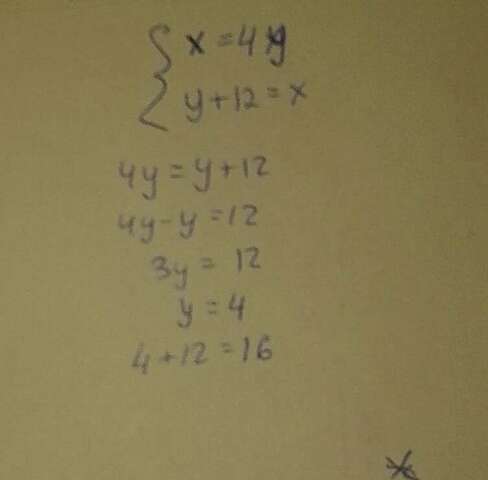 x = 4y
y + 12 = x
4y = y + 12
4y - y = 12
3y = 12
y = 4
4 + 12 = 16